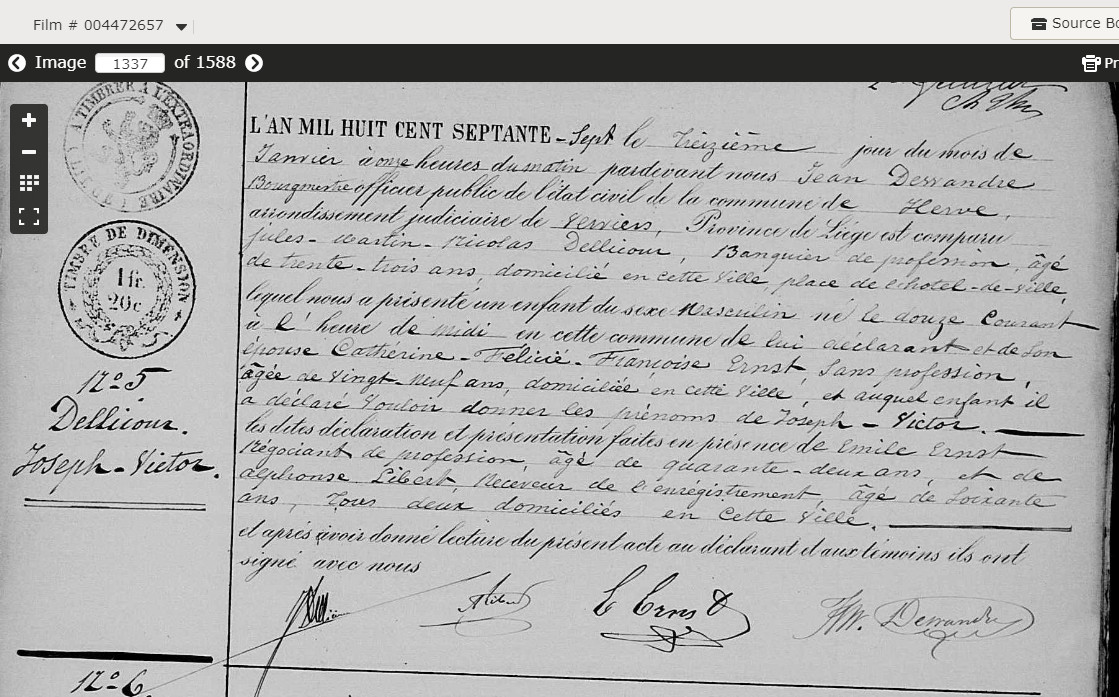 Film # 004472657
Source Bo
Image 1337 of 1588
Pr
A TIMBRER A L'EXTRAORDINAIRE
L'AN MIL HUIT CENT SEPTANTE - Sept le Treizième jour du mois de
Janvier à onze heures du matin pardevant nous Jean Dessandre
Bourgmestre officier public de l'état civil de la commune de Herve,
arrondissement judiciaire de Verviers, Province de Liége est comparu
Jules - Martin - Nicolas Dellicour, Banquier de profession, âgé
de trente - trois ans, domicilié en cette Ville place de l'hôtel - de - Ville,
lequel nous a présenté un enfant du sexe Masculin né le douze Courant
à l'heure de midi en cette commune de lui déclarant et de Son
épouse Cathérine - Félicié - Françoise Ernst, Sans profession,
âgée de Vingt - Neuf ans, domiciliée en cette Ville, et auquel enfant il
a déclaré Vouloir donner les prénoms de Joseph - Victor.
les dites déclaration et présentation faites en présence de Emile Ernst
Négociant de profession, âgé de quarante - deux ans, et de
alphonse Libert, Receveur de l'enrégistrement âgé de Soixante
ans, Tous deux domiciliés en Cette Ville.
et après avoir donné lecture du présent acte au déclarant et aux témoins ils ont
signé avec nous
TIMBRE DE DIMENSION
1 fr.
20 c
N° 5
Dellicour.
Joseph - Victor.
E Ernst
Dessandre
N° 6.